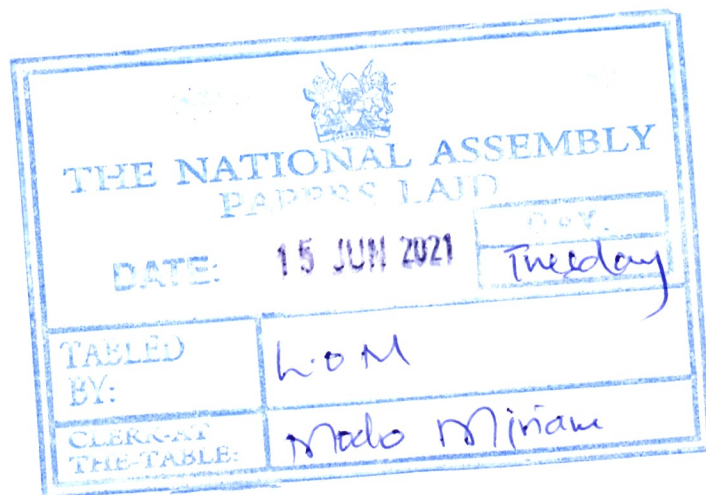 THE NATIONAL ASSEMBLY
PAPERS LAID
DATE: 15 JUN 2021
DAY.
Tuesday
TABLED
BY:
L.O.M
CLERK-AT
THE-TABLE:
Modo Miriam